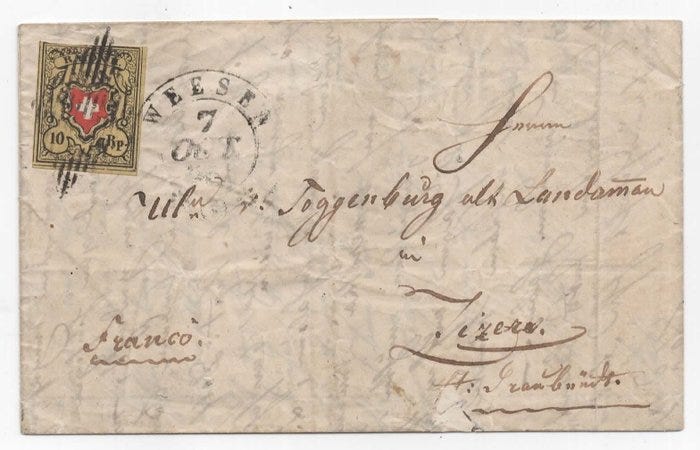 RAYON II
10 Rp.
WEESEN
7
OCT
Herrn
Ulr v. Toggenburg alt Landaman
in
Zizers.
Ct: Graubündt.
Franco.